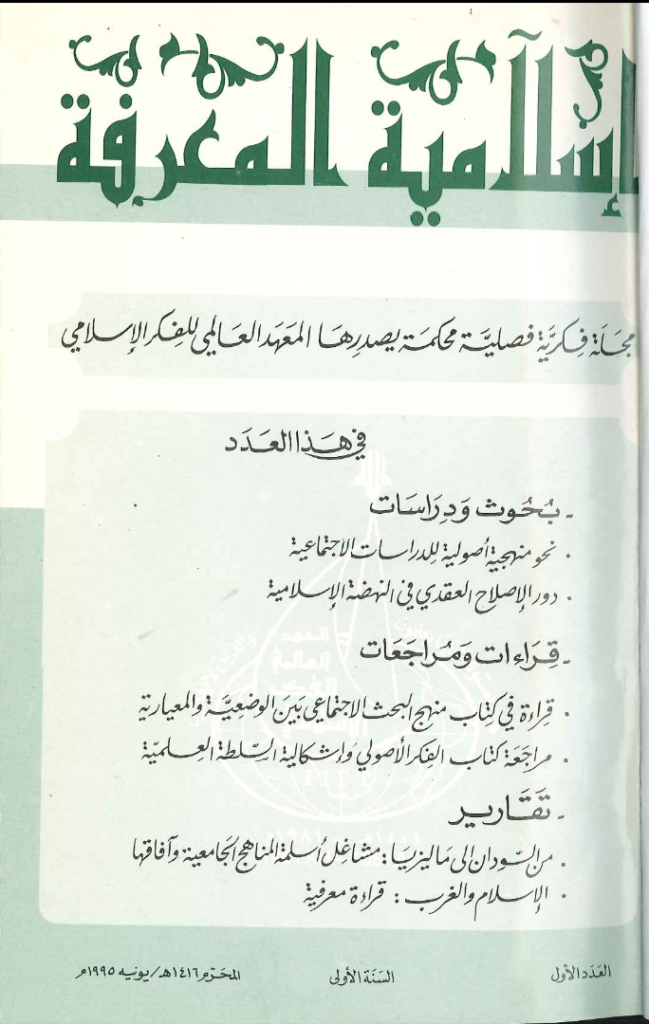 إسلامية المعرفة
مجلة فكريَّة فصليَّة محكمة يصدرها المعهد العالمي للفكر الإسلامي
في هذا العدد
- بُحُوث وَدِرَاسَات
• نحو منهجية أصولية للدراسات الاجتماعية
• دور الإصلاح العقدي في النهضة الإسلامية
- قِرَاءات وَمُرَاجَعَات
• قراءة في كتاب منهج البحث الاجتماعي بَين الوضعِيَّة والمعيارية
• مراجَعَة كتاب الفكر الأصولي وَإشكالية السُّلطة العِلميَّة
- تَقَارير
• من السّودان إلى مَاليزيَا: مشاغل أسلمة المناهج الجَامعية وآفاقها
• الإسلام والغرب: قراءة معرفية
العَدَد الأول
السَنَة الأولى
المحَرّم ١٤١٦هـ/يونيه ١٩٩٥م